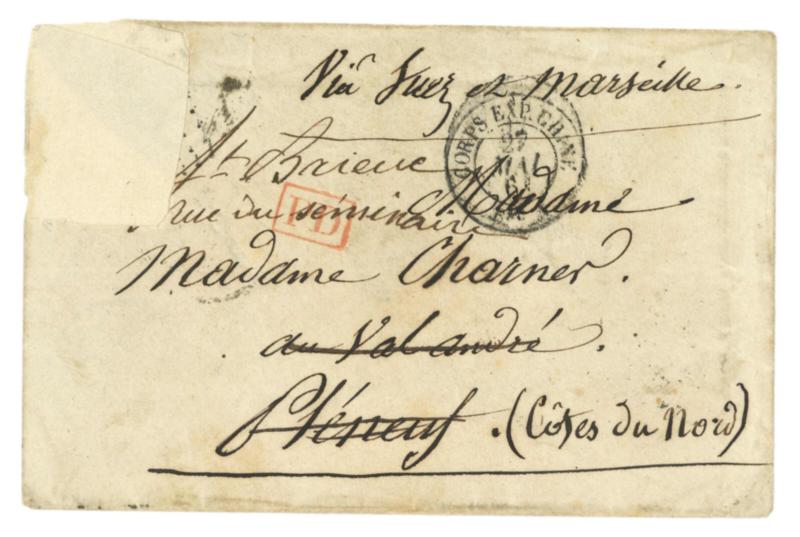 Viâ Suez et Marseille.
CORPS EXP. CHINE
27
MAI
St Brieuc
rue du séminaire
PD
Madame
Madame Charner.
au Val andré.
Pléneuf. (Côtes du Nord)